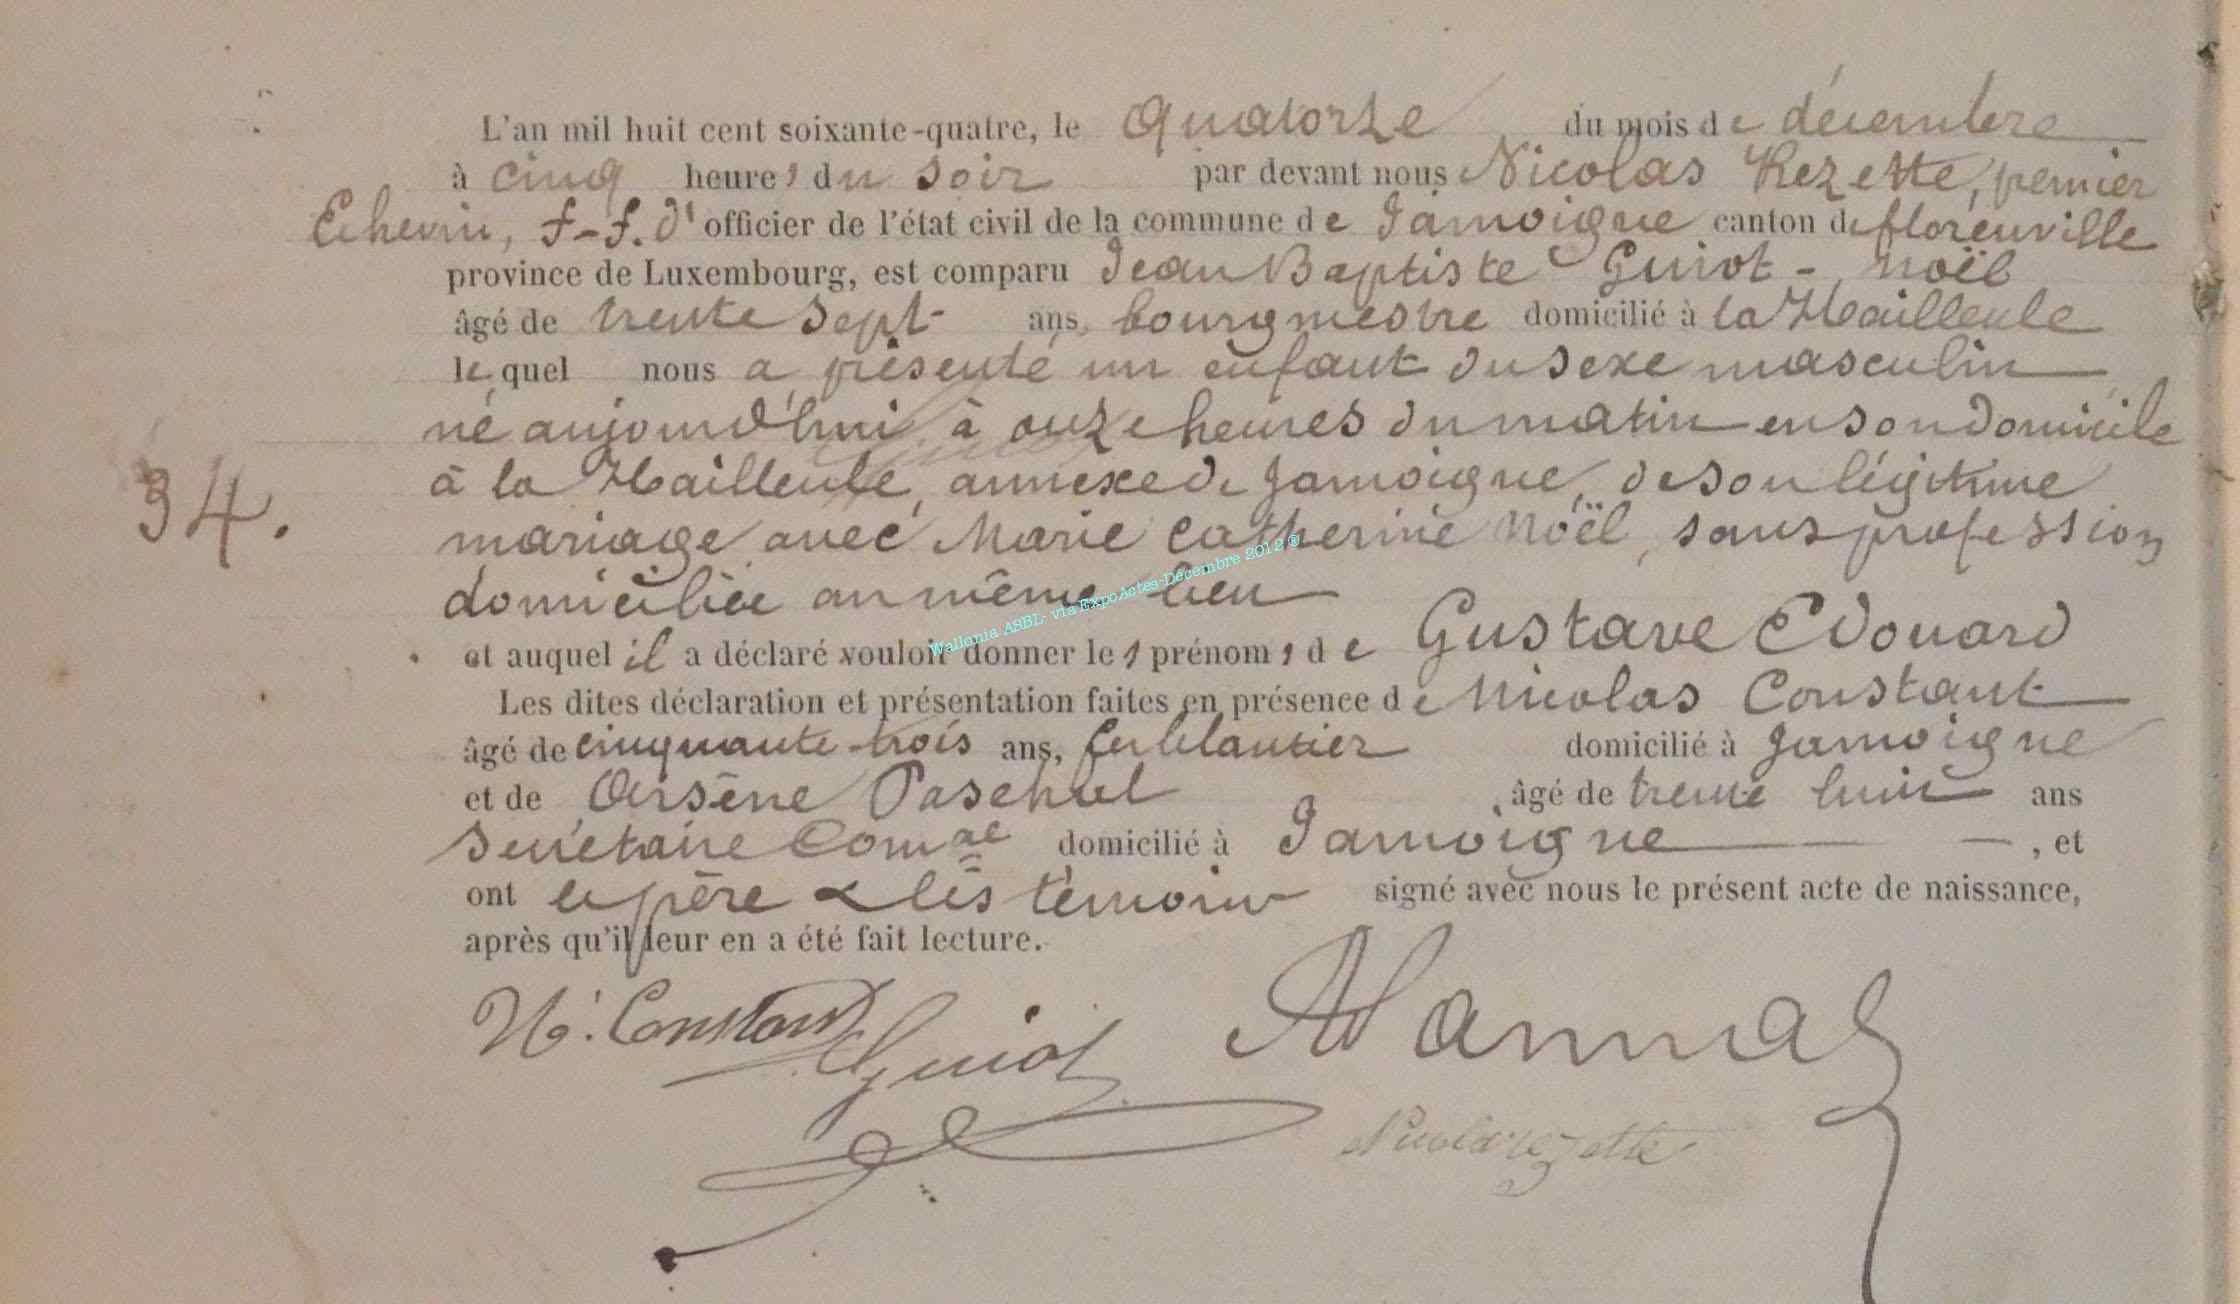 L'an mil huit cent soixante-quatre, le Quatorze du mois de décembre
à cinq heures du soir par devant nous Nicolas Rezette, premier
Echevin, f-f. d'officier de l'état civil de la commune de Jamoigne canton de florenville
province de Luxembourg, est comparu Jean Baptiste Guiot-Noël
âgé de trente sept ans, bourgmestre domicilié à la Hailleule
lequel nous a présenté un enfant du sexe masculin
né aujourd'hui à onze heures du matin en son domicile
34. à la Hailleule, annexe de Jamoigne, de son légitime
mariage avec Marie Catherine Noël, sans profession
domiciliée au même lieu
et auquel il a déclaré vouloir donner les prénoms de Gustave Edouard
Les dites déclaration et présentation faites en présence de Nicolas Constant
âgé de cinquante-trois ans, ferblantier domicilié à Jamoigne
et de Arsène âgé de trente huit ans
Secrétaire Comal domicilié à Jamoigne, et
ont le père & les témoins signé avec nous le présent acte de naissance,
après qu'il leur en a été fait lecture.
N. Constant Guiot
Nicolas rezette
Wallonia ASBL- via ExpoActes-Décembre 2012 ®